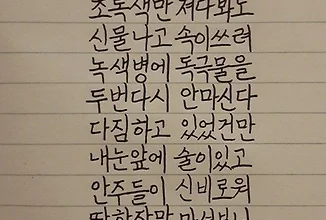 초록색만 쳐다봐도
신물나고 속이쓰려
녹색병에 독극물을
두번다시 안마신다
다짐하고 있었건만
내눈앞에 술이있고
안주들이 신비로워
딱한잔만